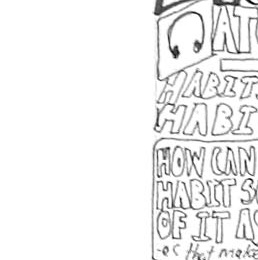 AT
HABITS
HABI
HOW CAN
HABIT S
OF IT A
es that make